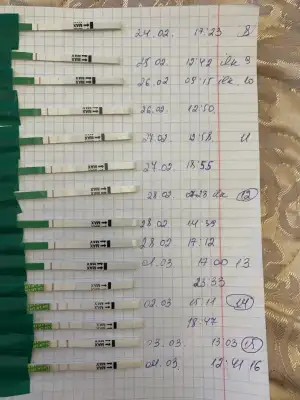 24.02. 17:23 8
25.02 12:42 9
26.02 09:15 10
26.02. 12:50
27.02 11
27.02 18:55
28.02 12
28.02 14:33
28.02 17:12
01.03. 17:00 13
23:33
02.03 15:11 14
18:47
03.03. 13:03 15
04.03. 12:41 16